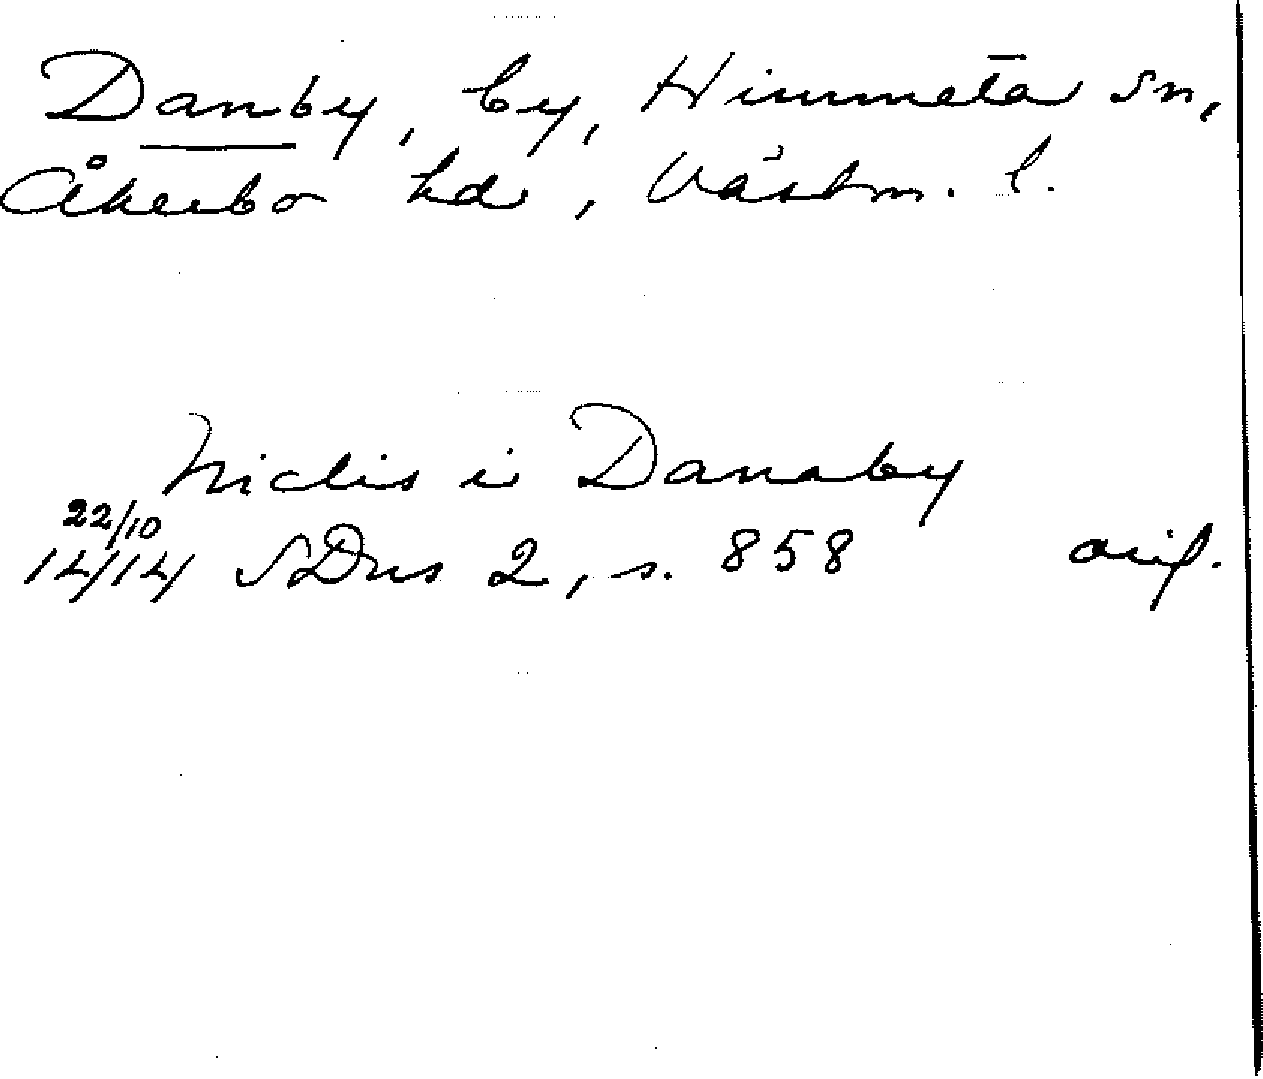 Danby, by, Himmeta sn,
Åkerbo hd, Västm. l.
Niclis i Danaby
22/10
1414 SDns 2, s. 858 orig.